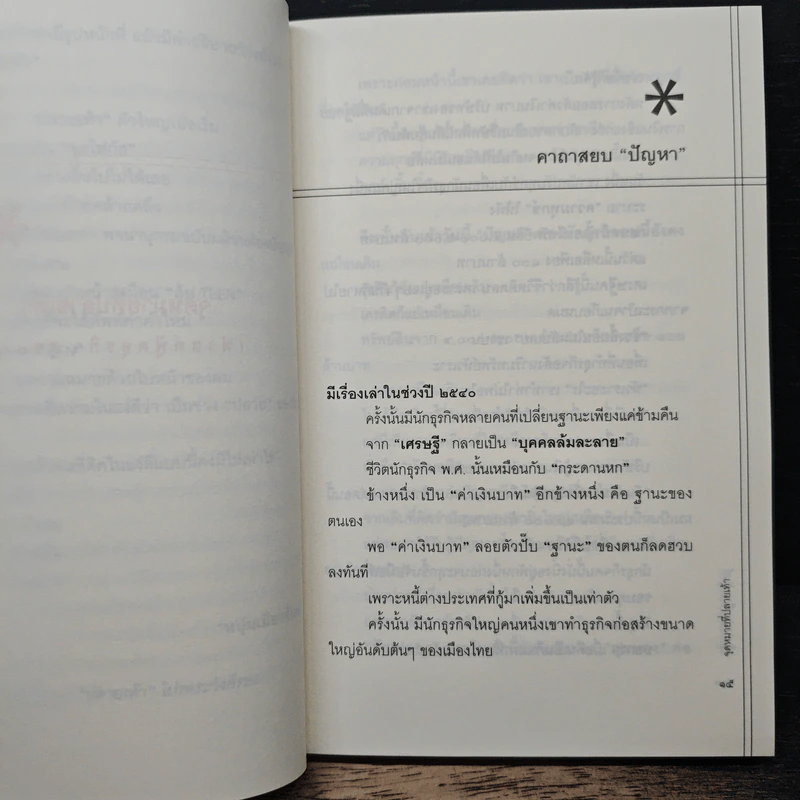 *
คาถาสยบ “ปัญหา”
มีเรื่องเล่าในช่วงปี ๒๕๔๐
ครั้งนั้นมีนักธุรกิจหลายคนที่เปลี่ยนฐานะเพียงแค่ข้ามคืน
จาก “เศรษฐี” กลายเป็น “บุคคลล้มละลาย”
ชีวิตนักธุรกิจ พ.ศ. นั้นเหมือนกับ “กระดานหก”
ข้างหนึ่ง เป็น “ค่าเงินบาท” อีกข้างหนึ่ง คือ ฐานะของ
ตนเอง
พอ “ค่าเงินบาท” ลอยตัวปั๊บ “ฐานะ” ของตนก็ลดฮวบ
ลงทันที
เพราะหนี้ต่างประเทศที่กู้มาเพิ่มขึ้นเป็นเท่าตัว
ครั้งนั้น มีนักธุรกิจใหญ่คนหนึ่งเขาทำธุรกิจก่อสร้างขนาด
ใหญ่อันดับต้นๆ ของเมืองไทย
จุดหมายที่ปลายเท้า